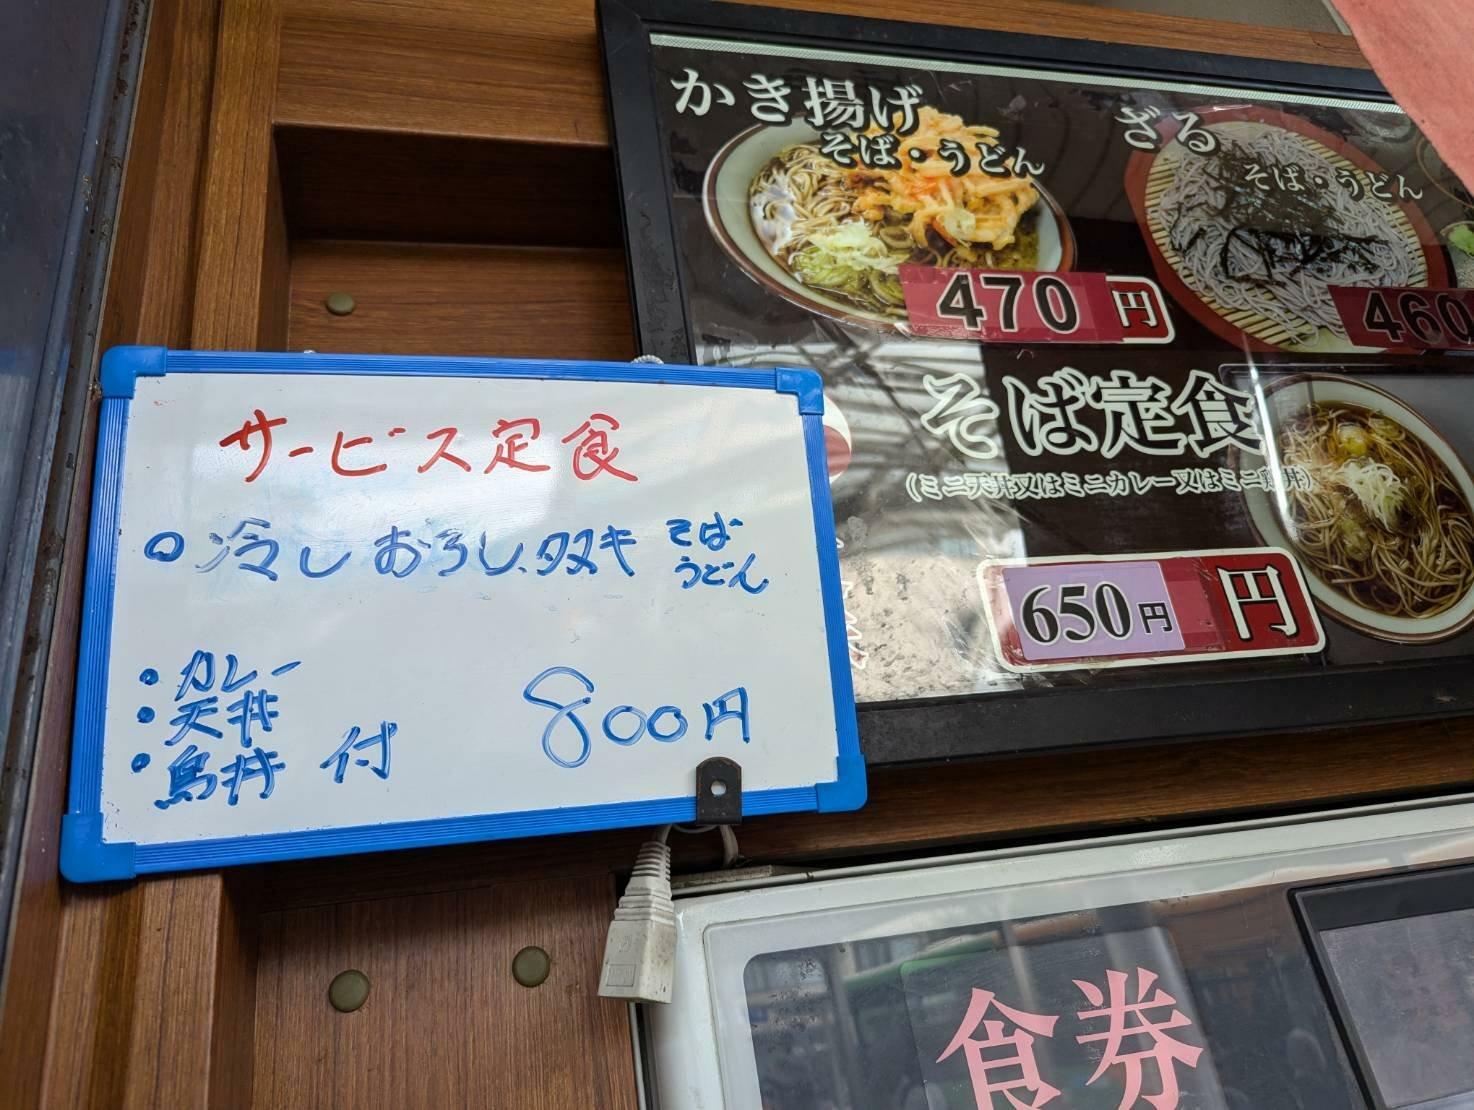 かき揚げ
そば・うどん
470円
ざる
そば・うどん
460
そば定食
(ミニ天丼又はミニカレー又はミニ鶏丼)
650円
円
サービス定食
○冷しおろしタヌキ そば
うどん
・カレー
・天丼
・鳥丼 付 800円
食券